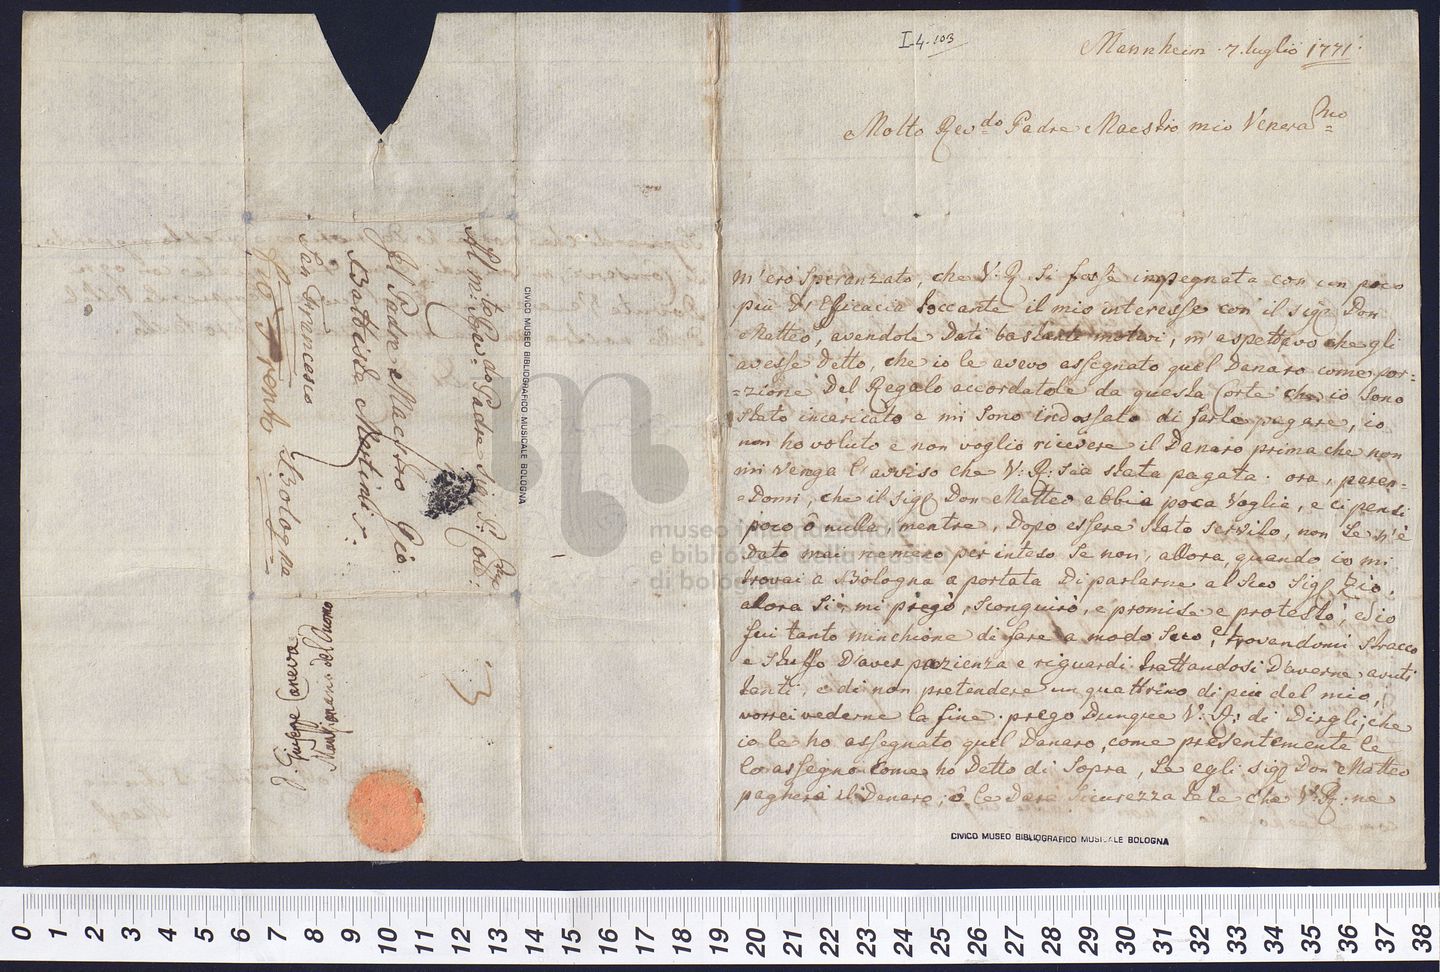 I.4.103
Mannheim . 7. luglio 1771.
Molto Rev.do Padre Maestro mio Venera.mo
M'ero speranzato, che V: R. si fosse impegnata con un poco
più d'efficacia toccante il mio interesse con il sigr Don
Matteo, avendole dati bastante motivi, m'aspettavo che gli
avesse detto, che io le avevo assegnato quel Danaro come por=
=zione del Regalo accordatole da questa Corte che io sono
stato incaricato e mi sono indossato di farle pagare, io
non ho voluto e non voglio ricevere il Danaro prima che non
mi venga l'avviso che V: R: sia stata pagata. ora, paren=
=domi, che il sigr Don Matteo abbia poca voglia, e ci pensi
poco ô nulla, mentre, dopo essere stato servito, non se n'è
dato mai nemeno per inteso se non, allora, quando io mi
trovai a Bologna a portata di parlarne al suo sigr Zio.
allora sì, mi pregò, scongiurò, e promise e protestò, ed io
fui tanto minchione di fare a modo suo, trovandomi stracco
e stuffo d'aver pazienza e riguardi trattandosi d'averne avuti
tanti, e di non pretendere un quattrino di piu del mio,
vorrei vederne la fine. prego dunque V: R: di dirgli, che
io le ho assegnato quel Danaro, come presentemente le
lo assegno come ho detto di sopra, se egli sigr Don Matteo
pagherà il Danaro, ô le darà sicurezza tale che V: R: ne
Al m:to Rev:do Padre Sig: P: Colmo
Il Padre Maestro Gio:
Battista Martini
San Francesco
Bologna
Trento
Giuseppe Caneva
Mansionario del Duomo
3
CIVICO MUSEO BIBLIOGRAFICO MUSICALE BOLOGNA
CIVICO MUSEO BIBLIOGRAFICO MUSICALE BOLOGNA
museo internazionale
e biblioteca della musica
di bologna
0 1 2 3 4 5 6 7 8 9 10 11 12 13 14 15 16 17 18 19 20 21 22 23 24 25 26 27 28 29 30 31 32 33 34 35 36 37 38